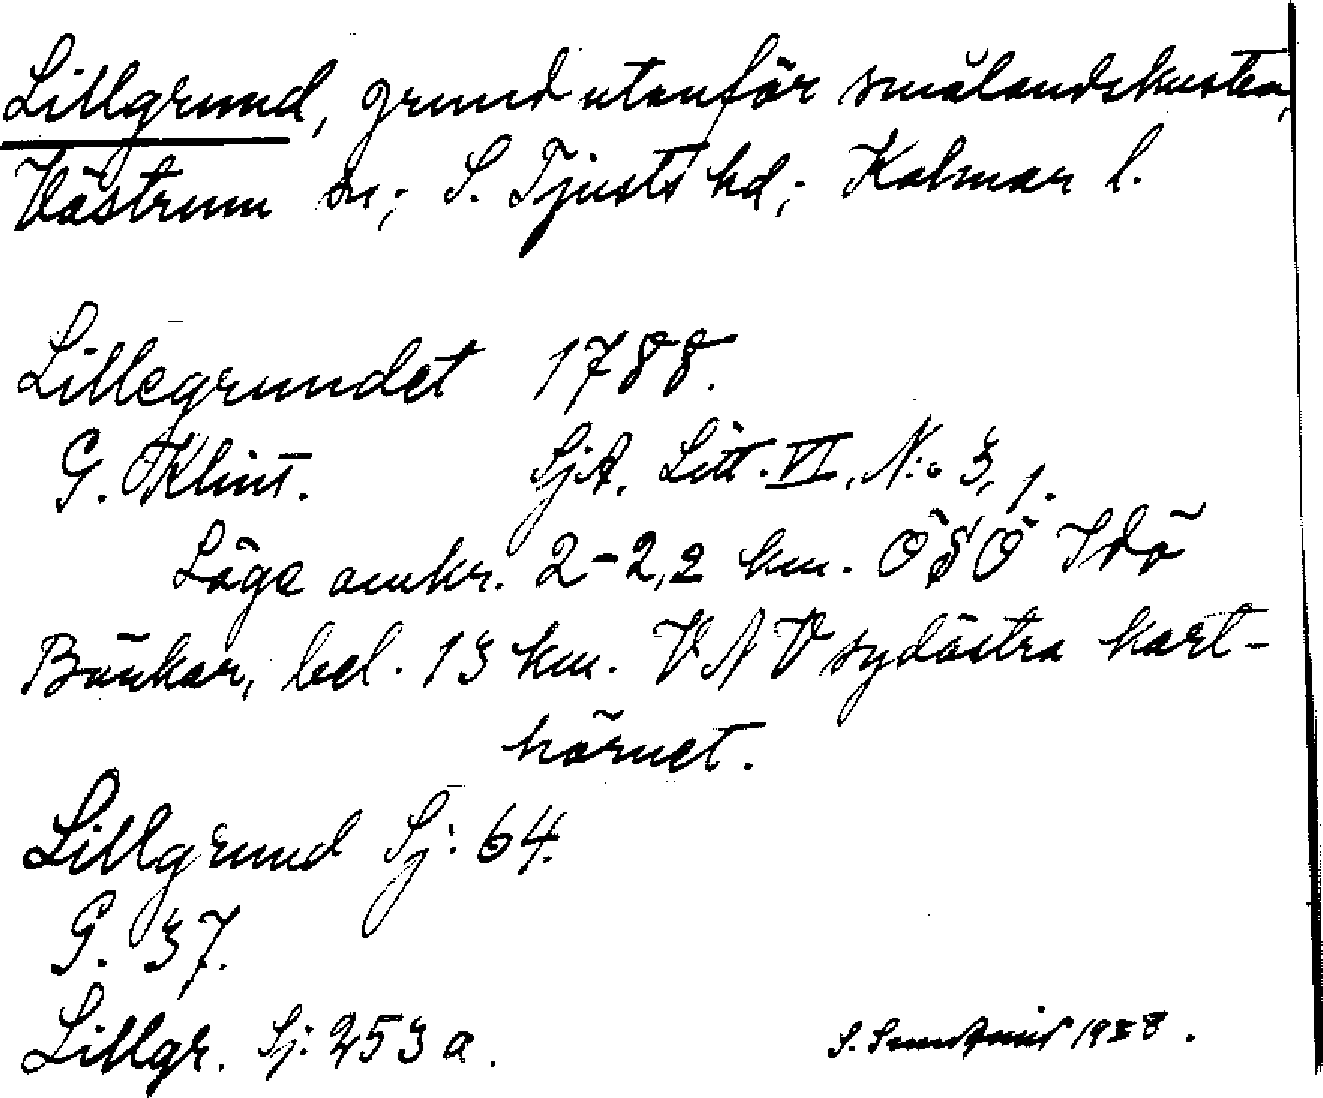 Lillgrund, grund utanför smålandskusten,
Västrum sn; S. Tjusts hd; Kalmar l.
Lillegrundet 1788.
G. Klint. SjA. Litt. VI. N:o 3, 1.
Läge omkr. 2-2,2 km. ÖSÖ Idö
Bänkar, bel. 13 km. VNV sydöstra kart-
hörnet.
Lillgrund Sj: 64.
G. 37.
Lillgr. Sj: 253 a.
S. 1938.